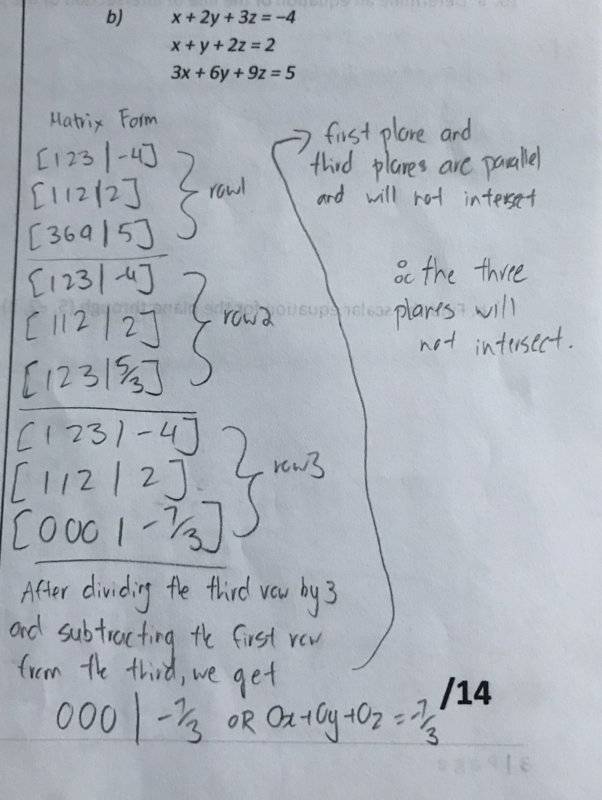 b) x + 2y + 3z = -4
x + y + 2z = 2
3x + 6y + 9z = 5
Matrix Form
[1 2 3 | -4]
[1 1 2 | 2] } row1
[3 6 9 | 5]
[1 2 3 | -4]
[1 1 2 | 2] } row2
[1 2 3 | 5/3]
[1 2 3 | -4]
[1 1 2 | 2] } row3
[0 0 0 | -7/3]
After dividing the third row by 3
and subtracting the first row
from the third, we get
0 0 0 | -7/3 OR 0x+0y+0z = -7/3
first plane and
third planes are parallel
and will not interset
∴ the three
planes will
not intersect.
/14